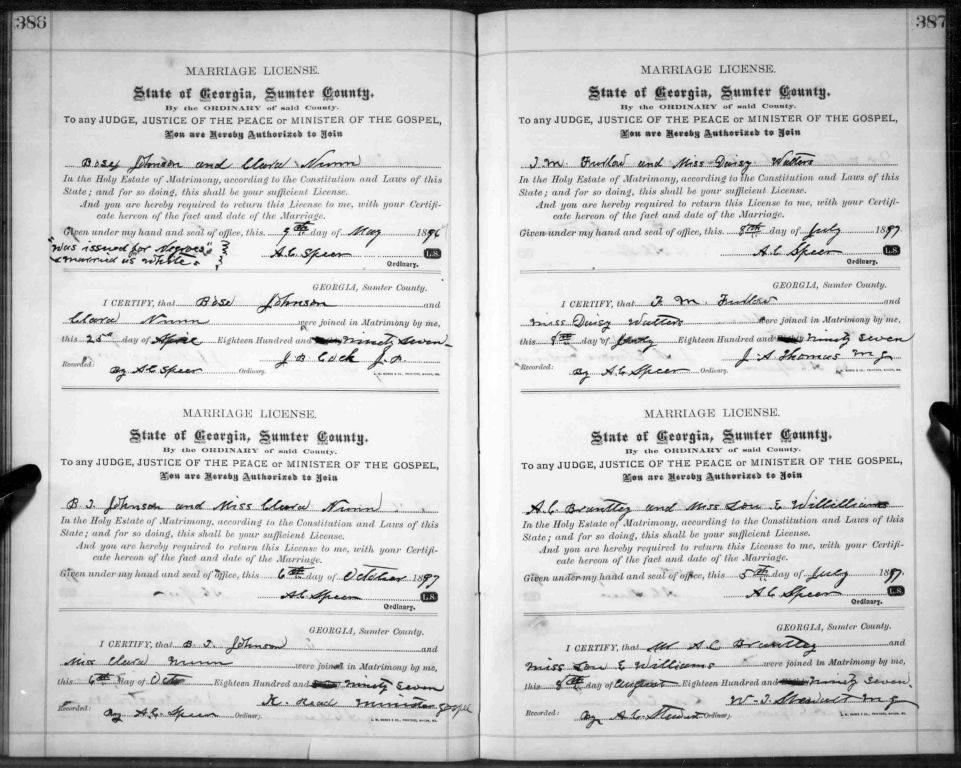 386
MARRIAGE LICENSE.
State of Georgia, Sumter County.
By the ORDINARY of said County.
To any JUDGE, JUSTICE OF THE PEACE or MINISTER OF THE GOSPEL,
You are Hereby Authorized to Join
Bose Johnson and Clara Nunn
In the Holy Estate of Matrimony, according to the Constitution and Laws of this
State; and for so doing, this shall be your sufficient License.
And you are hereby required to return this License to me, with your Certifi-
cate hereon of the fact and date of the Marriage.
Given under my hand and seal of office, this 9th day of May 1896
"was issued for Negroes" A.C. Speer L.S.
& married as white. Ordinary.
GEORGIA, Sumter County.
I CERTIFY, that Bose Johnson and
Clara Nunn were joined in Matrimony by me,
this 25 day of Eighteen Hundred and Ninety Seven
J. B. Cock J.P.
Recorded: By A.C. Speer Ordinary.
MARRIAGE LICENSE.
State of Georgia, Sumter County.
By the ORDINARY of said County.
To any JUDGE, JUSTICE OF THE PEACE or MINISTER OF THE GOSPEL,
You are Hereby Authorized to Join
B. T. Johnson and Miss Clara Nunn
In the Holy Estate of Matrimony, according to the Constitution and Laws of this
State; and for so doing, this shall be your sufficient License.
And you are hereby required to return this License to me, with your Certifi-
cate hereon of the fact and date of the Marriage.
Given under my hand and seal of office, this 6th day of October 1897
A.C. Speer L.S.
Ordinary.
GEORGIA, Sumter County.
I CERTIFY, that B. T. Johnson and
Miss Clara Nunn were joined in Matrimony by me,
this 6th day of Oct Eighteen Hundred and Ninety Seven
K. Read Minister Gospel
Recorded: By A.C. Speer Ordinary.
387
MARRIAGE LICENSE.
State of Georgia, Sumter County.
By the ORDINARY of said County.
To any JUDGE, JUSTICE OF THE PEACE or MINISTER OF THE GOSPEL,
You are Hereby Authorized to Join
T. M. Furlow and Miss Daisy Walters
In the Holy Estate of Matrimony, according to the Constitution and Laws of this
State; and for so doing, this shall be your sufficient License.
And you are hereby required to return this License to me, with your Certifi-
cate hereon of the fact and date of the Marriage.
Given under my hand and seal of office, this 8th day of July 1897
A.C. Speer L.S.
Ordinary.
GEORGIA, Sumter County.
I CERTIFY, that T. M. Furlow and
Miss Daisy Walters were joined in Matrimony by me,
this 8th day of July Eighteen Hundred and Ninety Seven
J. A. Thomas M.G.
Recorded: By A.C. Speer Ordinary.
MARRIAGE LICENSE.
State of Georgia, Sumter County.
By the ORDINARY of said County.
To any JUDGE, JUSTICE OF THE PEACE or MINISTER OF THE GOSPEL,
You are Hereby Authorized to Join
A.C. Brantley and Miss Lou E Willilliams
In the Holy Estate of Matrimony, according to the Constitution and Laws of this
State; and for so doing, this shall be your sufficient License.
And you are hereby required to return this License to me, with your Certifi-
cate hereon of the fact and date of the Marriage.
Given under my hand and seal of office, this 5th day of July 1897.
A.C. Speer L.S.
Ordinary.
GEORGIA, Sumter County.
I CERTIFY, that Mr A C Brantley and
Miss Lou E Williams were joined in Matrimony by me,
this 8th day of August Eighteen Hundred and Ninety Seven.
W. T. Stewart M G
Recorded: By A.C. Ordinary.